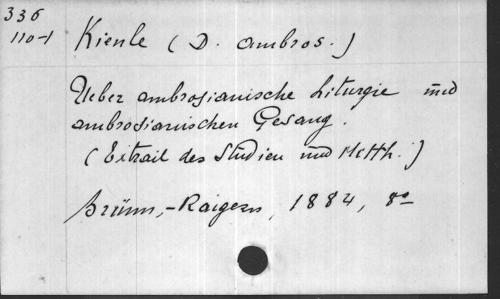 336
110-1
Kienle (D. Ambros.)
Ueber ambrosianische Liturgie und
ambrosianischen Gesang.
(Extrait des Studien und Mitth.)
Brünn,-Raigern, 1884, 8°